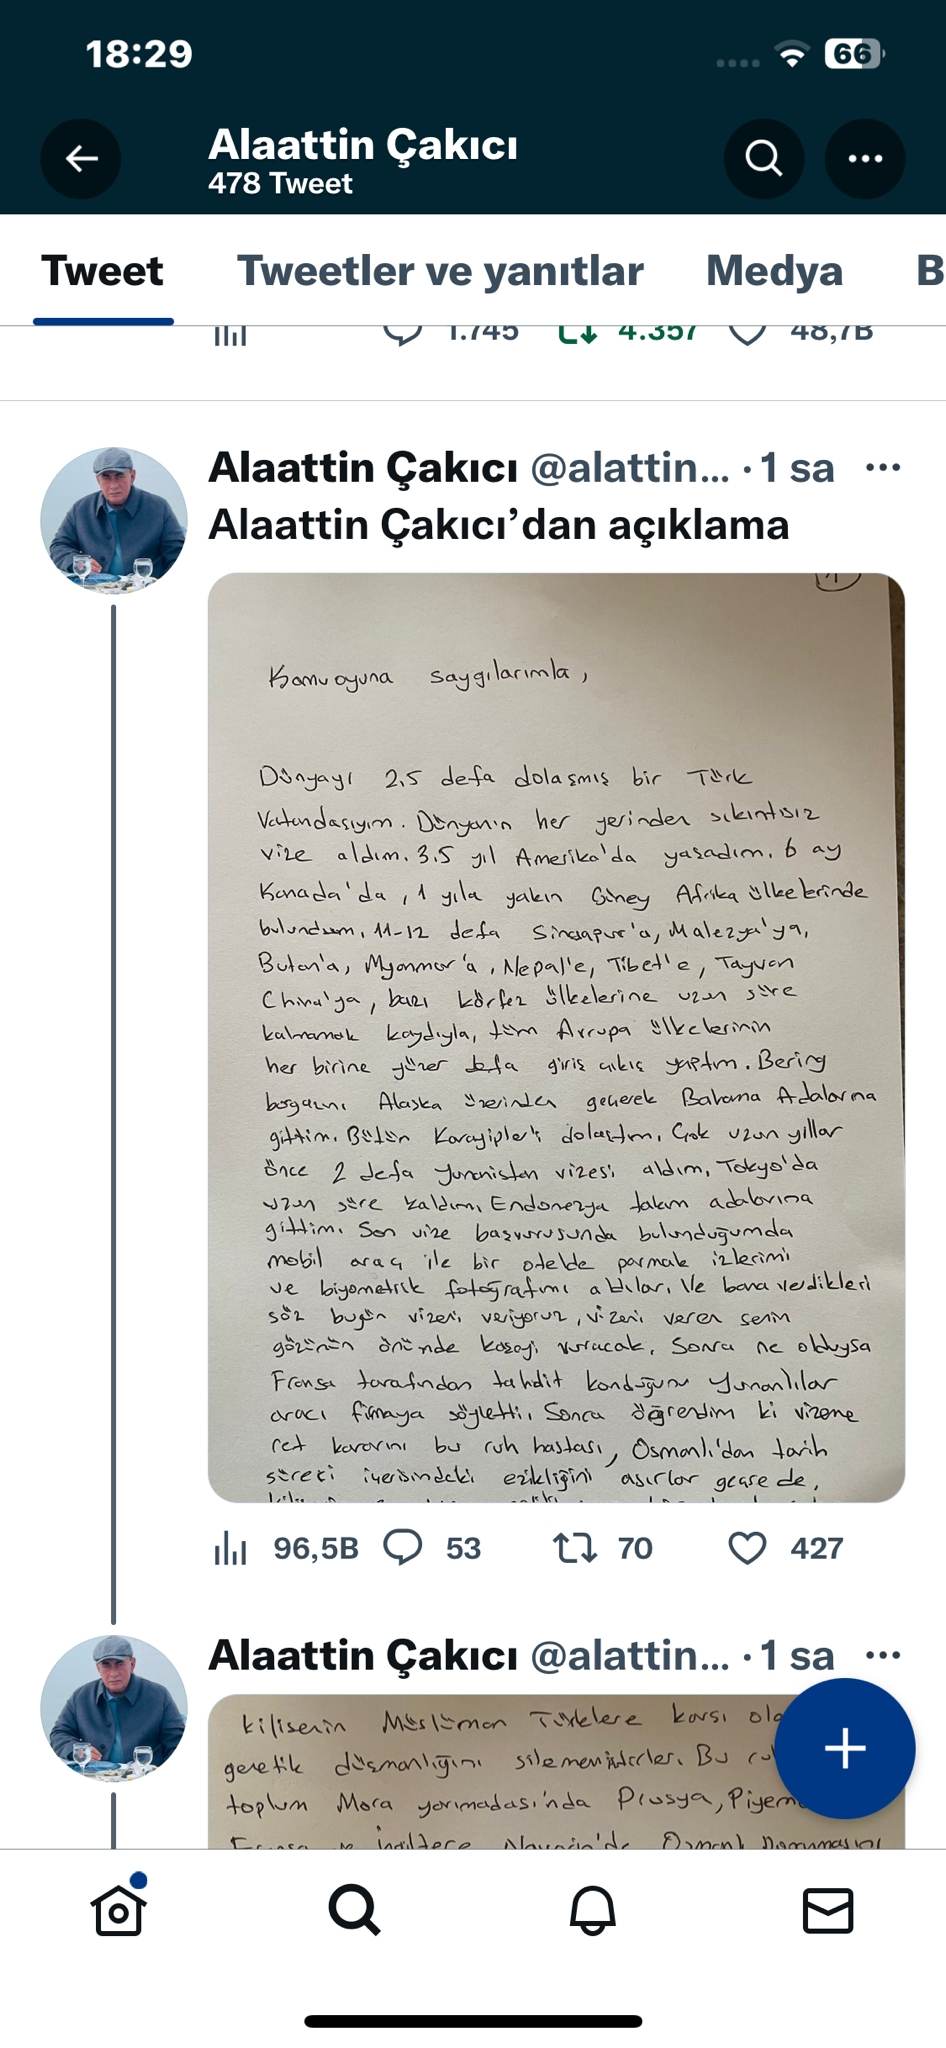 18:29
66
Alaattin Çakıcı
478 Tweet
Tweet Tweetler ve yanıtlar Medya B
1.745 4.357 48,7B
Alaattin Çakıcı @alattin... · 1 sa
Alaattin Çakıcı’dan açıklama
Kamuoyuna saygılarımla,
Dünyayı 2,5 defa dolaşmış bir Türk
Vatandaşıyım. Dünyanın her yerinden sıkıntısız
vize aldım. 3,5 yıl Amerika'da yaşadım. 6 ay
Kanada'da, 1 yıla yakın Güney Afrika ülkelerinde
bulundum, 11-12 defa Singapur'a, Malezya'ya,
Butan'a, Myanmar'a, Nepal'e, Tibet'e, Tayvan
China'ya, bazı körfez ülkelerine uzun süre
kalmamak kaydıyla, tüm Avrupa ülkelerinin
her birine yüzer defa giriş çıkış yaptım. Bering
boğazını Alaska üzerinden geçerek Bahama Adalarına
gittim. Bütün Karayipler'i dolaştım. Çok uzun yıllar
önce 2 defa Yunanistan vizesi aldım, Tokyo'da
uzun süre kaldım, Endonezya takım adalarına
gittim. Son vize başvurusunda bulunduğumda
mobil araç ile bir otelde parmak izlerimi
ve biyometrik fotoğrafımı aldılar. Ve bana verdikleri
söz bugün vizeni veriyoruz, vizeni veren senin
gözünün önünde kaşeyi vuracak. Sonra ne olduysa
Fransa tarafından tahdit konduğunu Yunanlılar
aracı firmaya söyletti. Sonra öğrendim ki vizeme
ret kararını bu ruh hastası, Osmanlı'dan tarih
süreci içerisindeki ezikliğini asırlar geçse de,
96,5B 53 70 427
Alaattin Çakıcı @alattin... · 1 sa
kilisenin Müslüman Türklere karşı
genetik düşmanlığını silememişlerdir. Bu
toplum Mora yarımadası'nda Prusya,
Fransa ve İngiltere Navarin'de